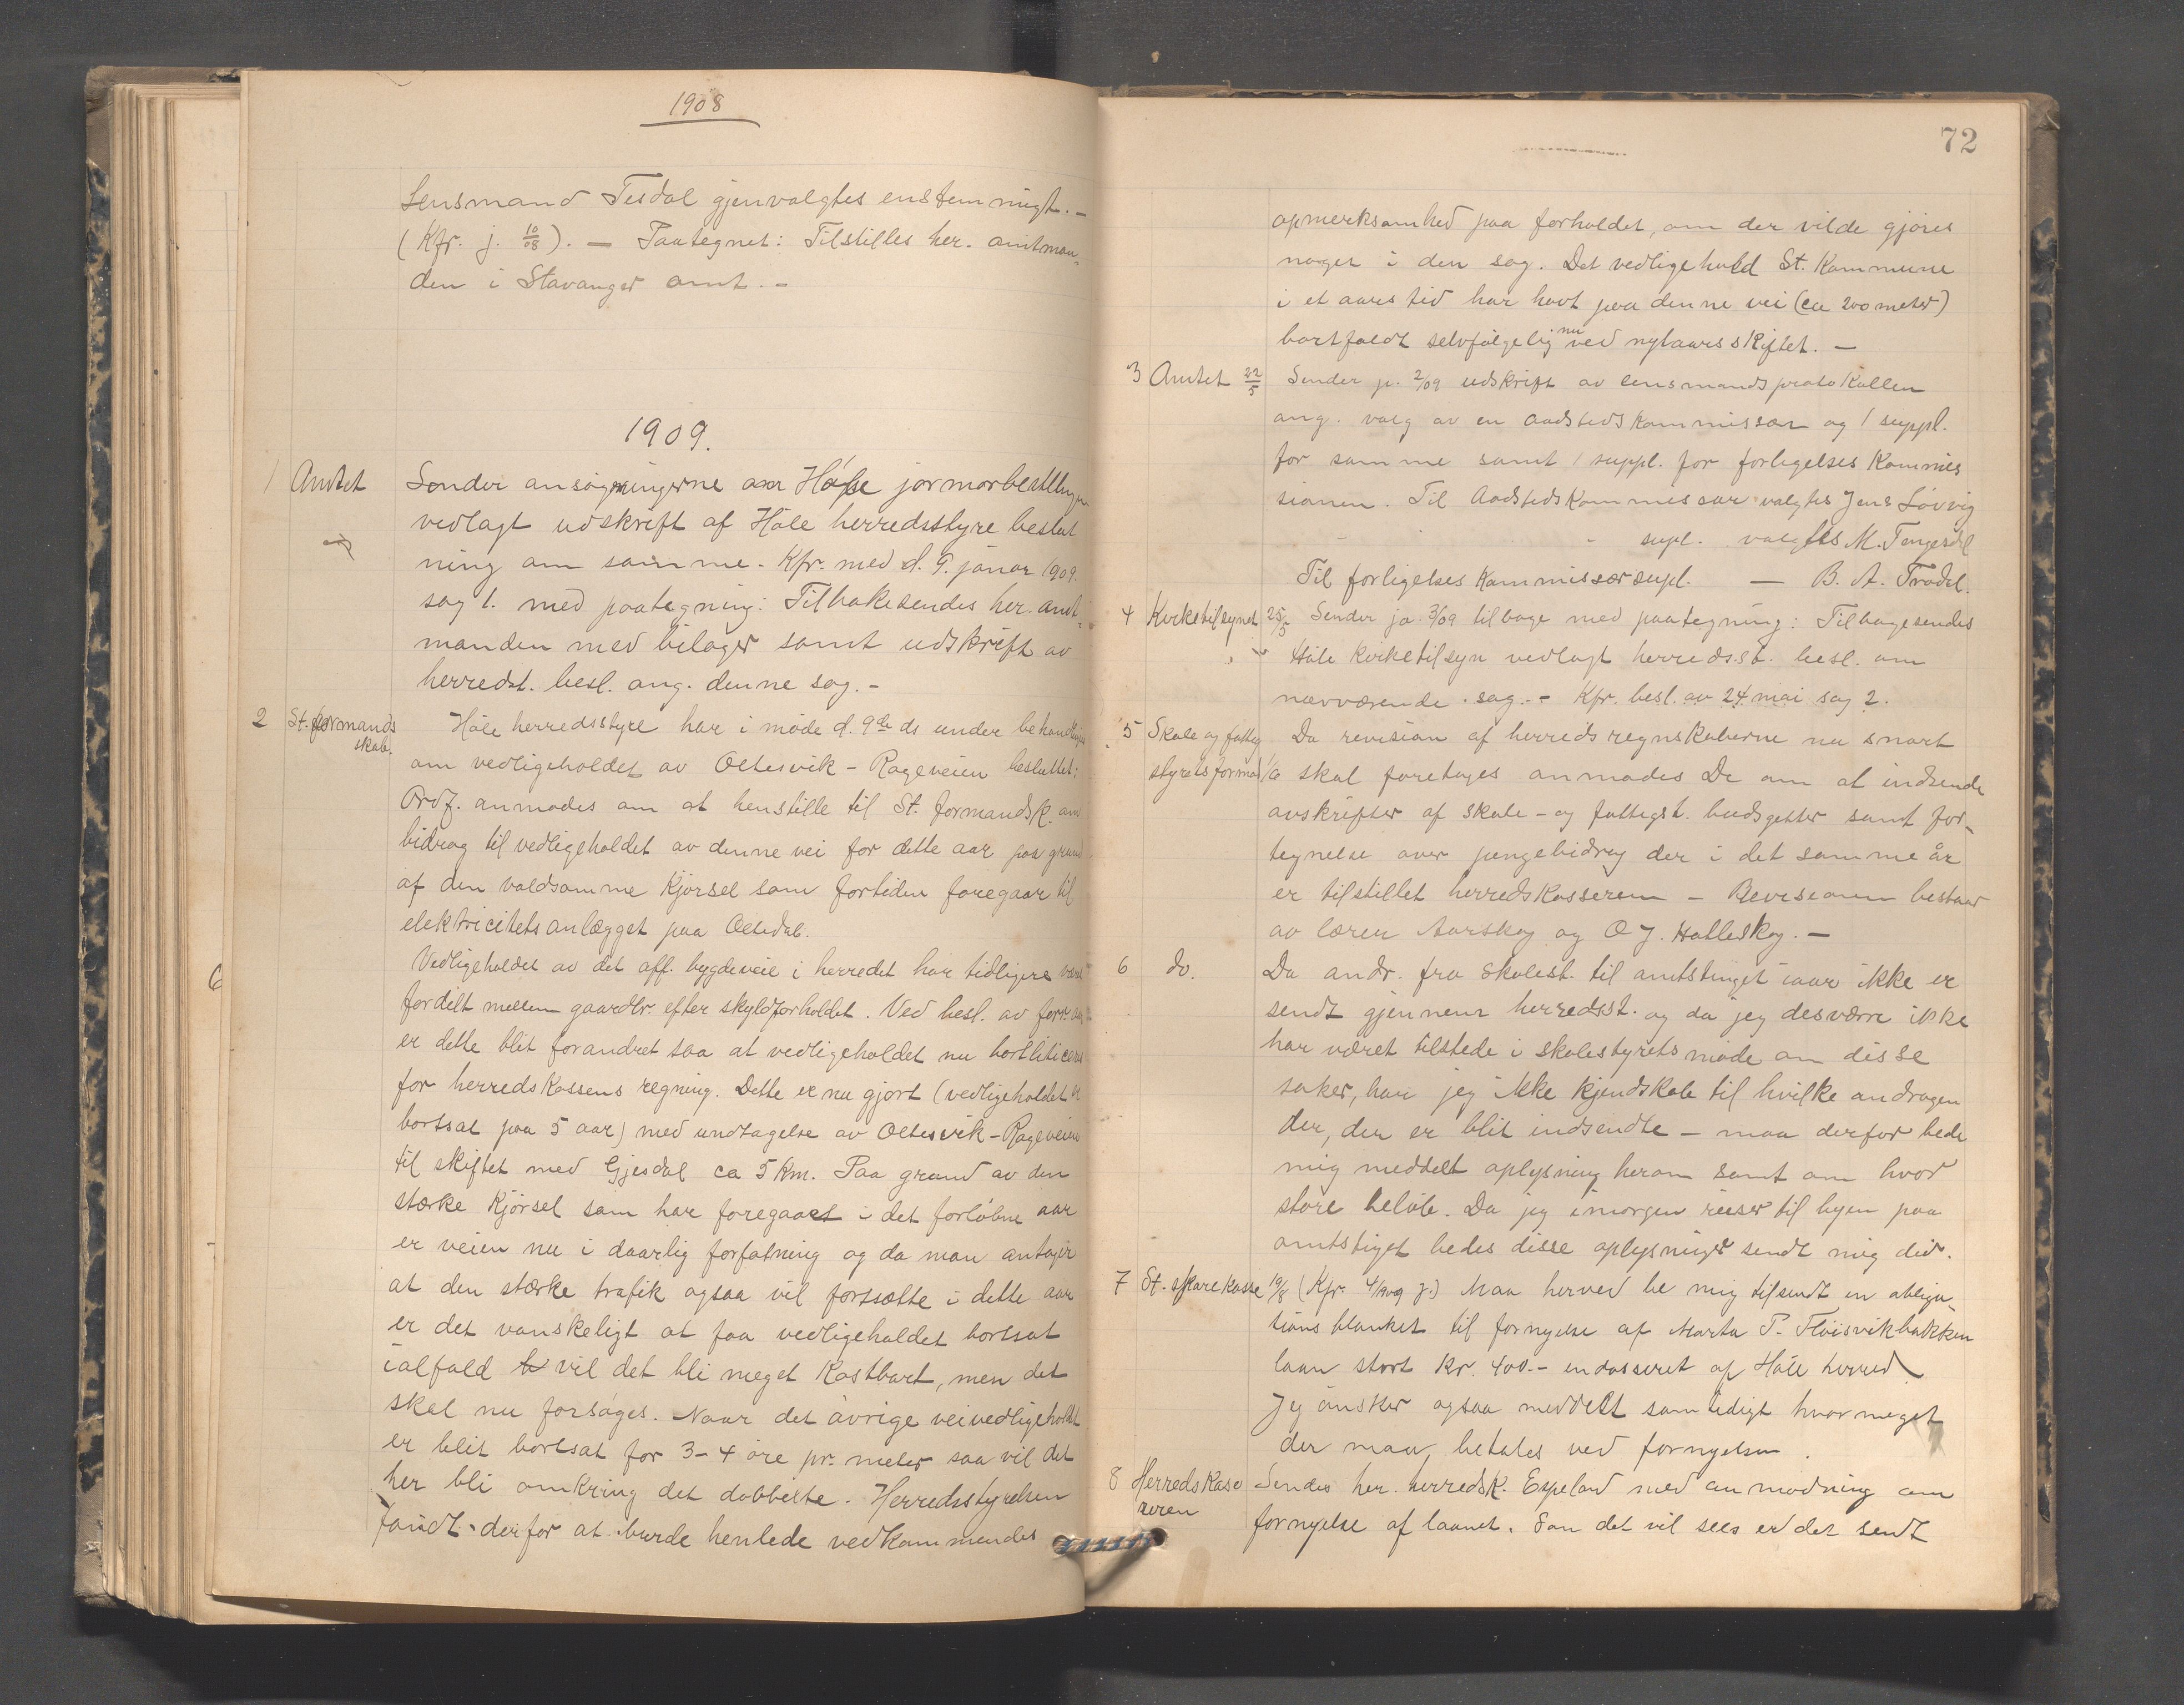 1908
Lensmand Tesdal gjenvalgtes enstemmigt. –
(Kfr. j. 10/08). – Paategnet: Tilstilles her. amtman-
den i Stavanger amt. –
1909.
1 Amtet Sender ansøgningerne om Høle jormorbestilling
vedlagt udskrift af Høle herredsstyre beslut
ning om samme. Kfr. med d. 9. januar 1909.
sag 1. med paategning: Tilbakesendes her. amt-
manden med bilager samt udskrift av
herredst. besl. ang. denne sag. –
2 St. formands
skab. Høle herredsstyre har i møde d. 9de ds under behandlingen
om vedligeholdet av Oltesvik – Rageveien besluttet:
Ordf. anmodes om at henstille til St. formandsk. om
bidrag til vedligeholdet av denne vei for dette aar paa grund
af den voldsomme kjørsel som fortiden foregaar til
elektricitetsanlægget paa Oltedal.
Vedligeholdet av det off. bygdeveie i herredet har tidligere været
fordelt mellem gaardbr. efter skyldforholdet. Ved besl. av
er dette blit forandret saa at vedligeholdet nu bortliciteres
for herredskassens regning. Dette er nu gjort (vedligeholdet er
bortsat paa 5 aar) med undtagelse av Oltesvik – Rageveien
til skiftet med Gjesdal ca 5 km. Paa grund av den
stærke kjørsel som har foregaaet i det forløbne aar
er veien nu i daarlig forfatning og da man antager
at den stærke trafik ogsaa vil fortsætte i dette aar
er det vanskeligt at faa vedligeholdet bortsat
ialfald vil det bli meget kostbart, men det
skal nu forsøges. Naar det øvrige veivedligehold
er blit bortsat for 3–4 øre pr. meter saa vil det
her bli omkring det dobbelte. Herredsstyrelsen
fandt derfor at burde henlede vedkommendes
72
opmerksomhed paa forholdet, om der vilde gjøres
noget i den sag. Det vedligehold St. kommune
i et aars tid har havt paa denne vei (ca 200 meter)
bortfaldt selvfølgelig nu ved nytaarsskiftet. –
3 Amtet 22/5 Sender j. 2/09 udskrift av lensmandsprotokollen
ang. valg av en aadstedskommissær og 1 suppl.
for samme samt 1 suppl. for forligelses kommis
sionen. Til Aadstedskommissær valgtes Jens Løvvig
supl. valgtes M. Tengesdal
Til forligelses kommissærsupl. — B. A. Trædal.
4 Kirketilsynet 25/5 Sender ja. 3/09 tilbage med paategning: Tilbagesendes
Høle kirketilsyn vedlagt herredsst. besl. om
nærværende sag. – Kfr. besl. av 24 mai sag 2.
5 Skole og fattig Da revision af herredsregnskaberne nu snart
styrets formand skal foretages anmodes De om at indsende
avskrifter af skole- og fattigst. budsgetter samt for-
tegnelse over pengebidrag der i det samme år
er tilstillet herredskasseren – Revisionen bestaar
av lærer Aarskog og O J. Halleskog. –
6 do. Da andr. fra skolest. til amtstinget iaar ikke er
sendt gjennem herredsst. og da jeg desværre ikke
har været tilstede i skolestyrets møde om disse
saker, har jeg ikke kjendskab til hvilke andragen
der, der er blit indsendte – maa derfor bede
mig meddelt oplysning herom samt om hvor
store beløb. Da jeg imorgen reiser til byen paa
amtstiget bedes disse oplysninger sendt mig did.
7 St. sparekasse 19/8 (Kfr. 4/1909 j.) Maa herved be mig tilsendt en obliga-
tions blanket til fornyelse af Marta P. Fløisvikbakken
laan stort kr. 400.– endosseret af Høle herred
Jeg ønsker ogsaa meddelt samtidigt hvormeget
der maa betales ved fornyelsen.
8 Herredskasse
reren Sendes her. herredsk. Espeland med anmodning om
fornyelse af laanet. Som det vil sees er det sendt